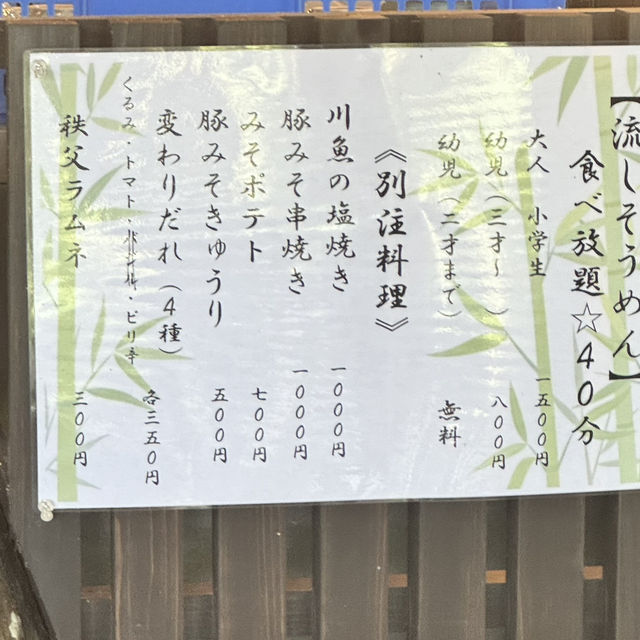 【流しそうめん】
食べ放題☆40分
大人 小学生 一五〇〇円
幼児(三才～) 八〇〇円
幼児(二才まで) 無料
《別注料理》
川魚の塩焼き 一〇〇〇円
豚みそ串焼き 一〇〇〇円
みそポテト 七〇〇円
豚みそきゅうり 五〇〇円
変わりだれ(4種) 各三五〇円
くるみ・トマト・・ピリ辛
秩父ラムネ 三〇〇円